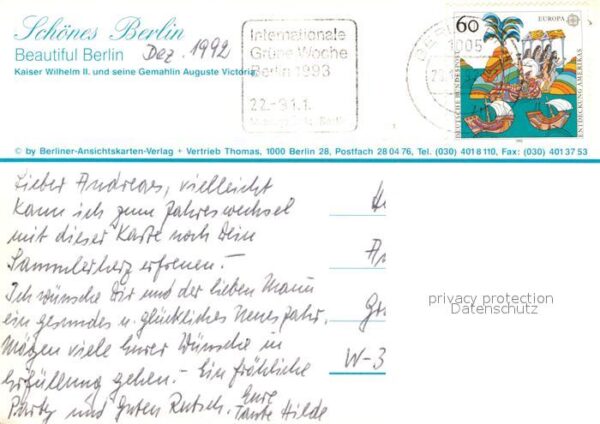 Schönes Berlin
Beautiful Berlin
Dez. 1992
Kaiser Wilhelm II. und seine Gemahlin Auguste Victoria
Internationale
Grüne Woche
Berlin 1993
22.-31.1.
1005
60
EUROPA
DEUTSCHE BUNDESPOST
ENTDECKUNG AMERIKAS
© by Berliner-Ansichtskarten-Verlag + Vertrieb Thomas, 1000 Berlin 28, Postfach 28 04 76, Tel. (030) 401 8 110, Fax: (030) 401 37 53
Lieber Andreas, vielleicht
kann ich zum Jahreswechsel
mit dieser Karte noch Dein
Sammlerherz erfreuen. –
Ich wünsche Dir und der lieben Mami
ein gesundes u. glückliches Neues Jahr.
Mögen viele Eurer Wünsche in
Erfüllung gehen. – Ein fröhliche
Party und guten Rutsch. Eure
Tante Hilde
W-3
privacy protection
Datenschutz